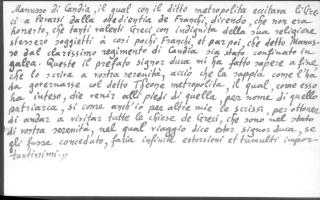 Manusso di Candia, il qual con il ditto metropolita eccitava li Gre
ci a levarsi dalla obedientia de Franchi, dicendo, che non era
honesto, che tanti valenti Greci con indignita della sua religione
stessero soggetti à così pochi Franchi, et par poi, che detto Manus,
so dal clarissimo regimento di Candia sia stato confinato in
galea. Queste il prefato signor duca mi ha fatto sapere a fine,
che lo scriva a vostra serenità, acciò che la sappia come l'ha
da governarse col detto Theone metropolita, il qual, come esso
ha inteso, die venir alli piedi di quella per nome di quello
patriarca, si come anch'io per altre mie le scrissi, per ottener
di andar a visitar tutte le chiese de Greci, che sono nel stato
di vostra serenità, nel qual viaggio dice esto signor duca, se
gli fusse conceduto, faria infinite estorsioni et tumulti impor-
tantissimi.,,